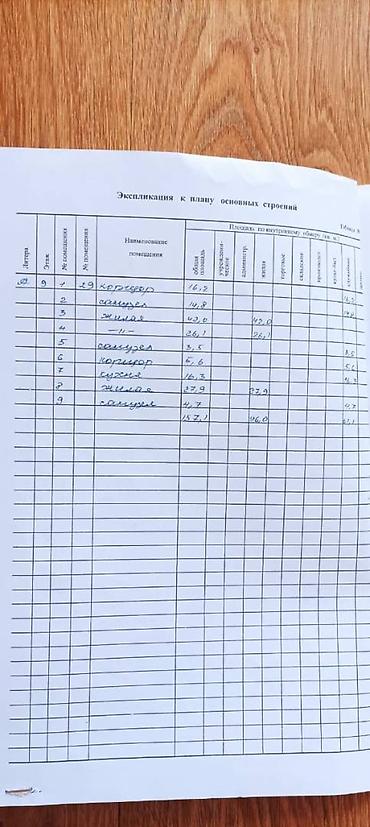 Экспликация к плану основных строений
Таблица
Литера Этаж № помещения № помещения Наименование помещения Площадь по внутреннему обмеру (кв. м.)
общая площадь учрежденческое администр. жилая торговые складские
9 1 29 коридор 16,2 16,2
2 санузел 14,8
3 жилая 42,0 42,0
4 —"— 26,1 26,1
5 санузел 3,5 3,5
6 коридор 5,6
7 кухня 16,3 16,3
8 жилая 27,9 27,9
9 санузел 4,7 4,7
157,1 96,0 61,1